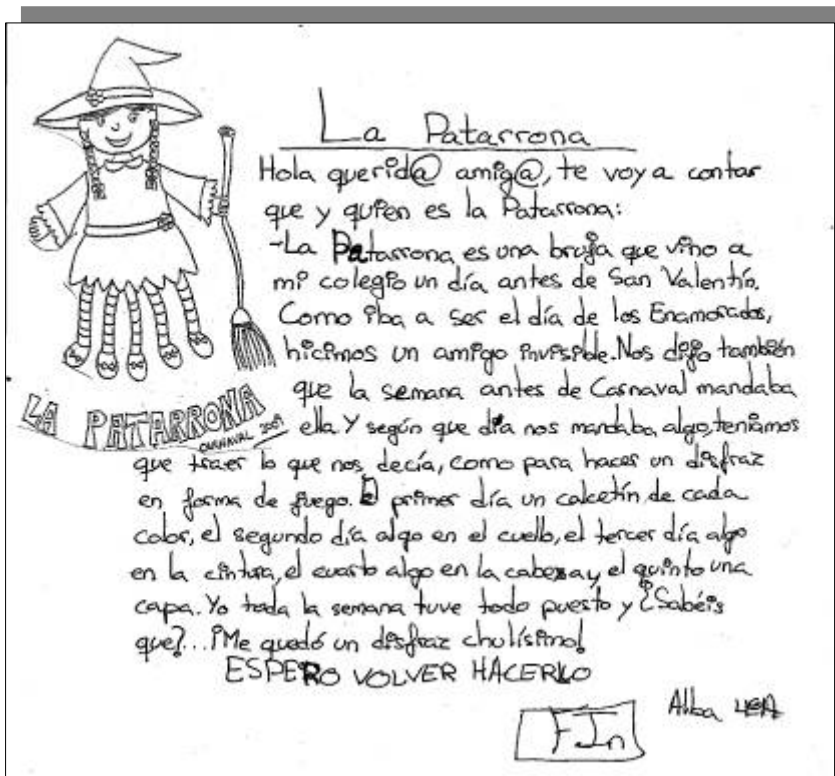 La Patarrona
Hola querid@ amig@, te voy a contar
que y quien es la Patarrona:
-La Patarrona es una bruja que vino a
mi colegio un día antes de San Valentín.
Como iba a ser el día de los Enamorados,
hicimos un amigo invisible. Nos dijo también
que la semana antes de Carnaval mandaba
ella Y según que día nos mandaba algo, teníamos
que traer lo que nos decía, como para hacer un disfraz
en forma de juego. El primer día un calcetín de cada
color, el segundo día algo en el cuello, el tercer día algo
en la cintura, el cuarto algo en la cabeza y el quinto una
capa. Yo toda la semana tuve todo puesto y ¿Sabéis
que?... ¡Me quedó un disfraz chulísimo!
ESPERO VOLVER HACERLO
Alba 4ºA
FIn
LA PATARRONA
CARNAVAL 2009